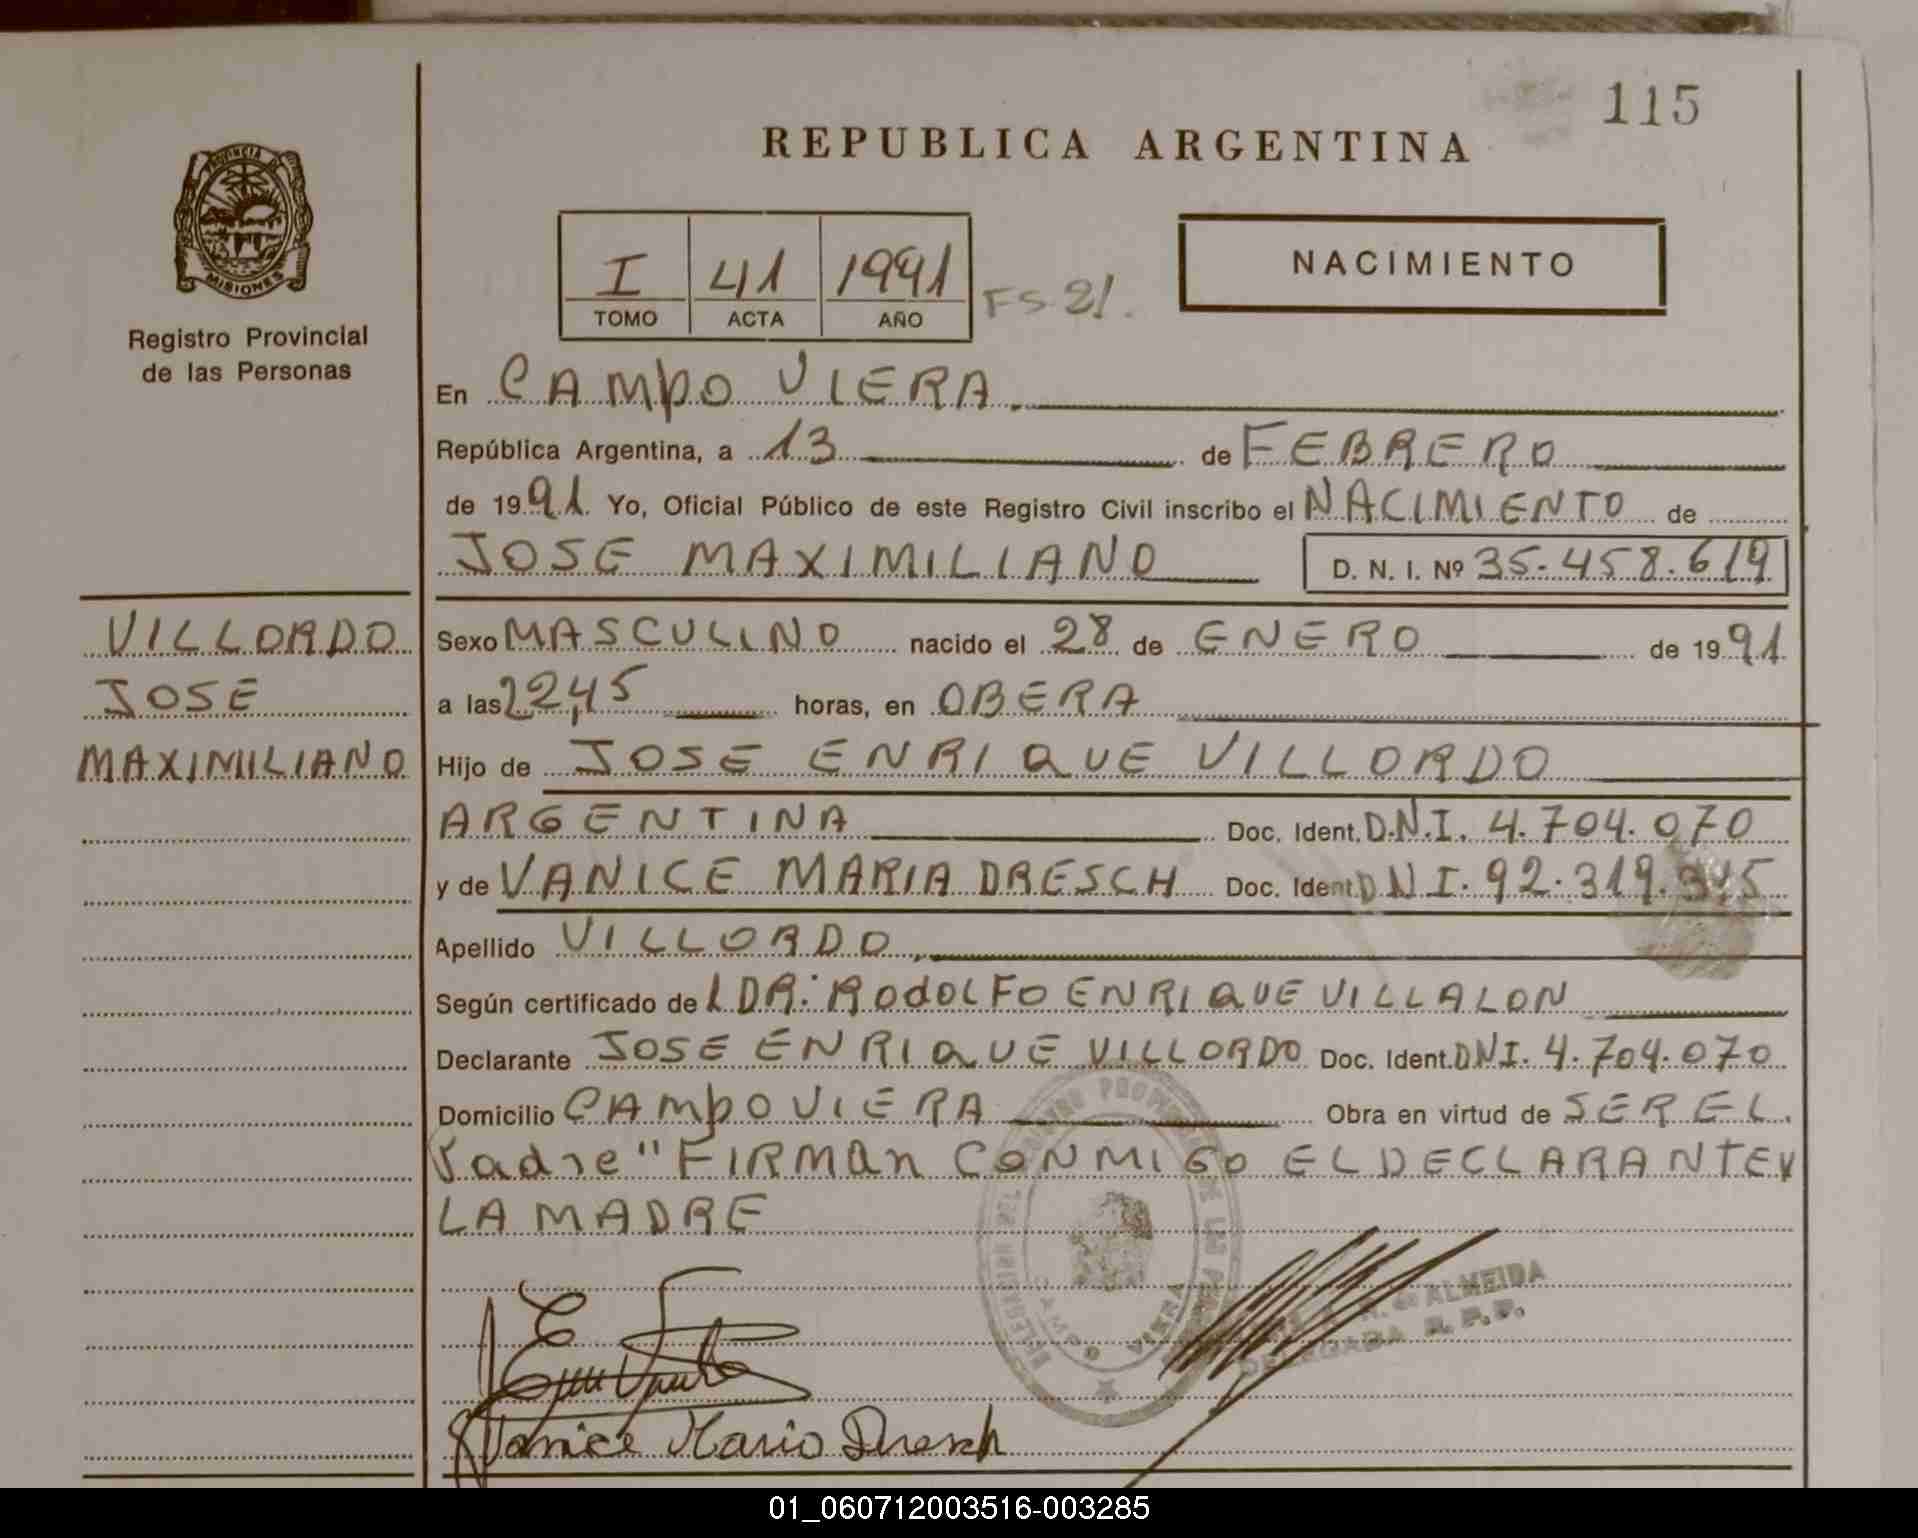 115
REPUBLICA ARGENTINA
PROVINCIA DE
MISIONES
Registro Provincial
de las Personas
I 41 1991
TOMO ACTA AÑO
FS 81.
NACIMIENTO
En CAMPO VIERA.
República Argentina, a 13 de FEBRERO
de 1991. Yo, Oficial Público de este Registro Civil inscribo el NACIMIENTO de
JOSE MAXIMILIANO D. N. I. Nº 35.458.619
VILLORDO
JOSE
MAXIMILIANO
Sexo MASCULINO nacido el 28 de ENERO de 1991
a las 22,45 horas, en OBERA
Hijo de JOSE ENRIQUE VILLORDO
ARGENTINA Doc. Ident. D.N.I. 4.704.070
y de VANICE MARIA DRESCH Doc. Ident DNI. 92.319.345
Apellido VILLORDO,
Según certificado de L DR: RODOLFO ENRIQUE VILLALON
Declarante JOSE ENRIQUE VILLORDO Doc. Ident. DNI. 4.704.070
Domicilio CAMPO VIERA Obra en virtud de SER EL.
Padre" FIRMAN CONMIGO EL DECLARANTE Y
LA MADRE
CAMPO VIERA
N. de ALMEIDA
DELEGADA R. P. P.
Vanice Maria Dresch
01_060712003516-003285